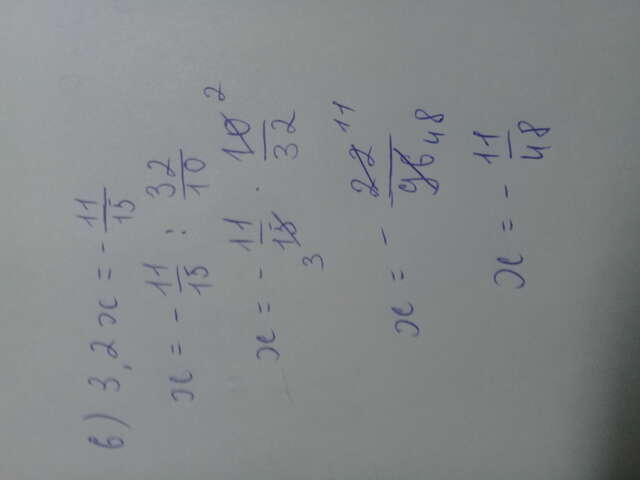 в) 3,2x = - 11/15
x = - 11/15 : 32/10
x = - 11/15 3 · 10/32 2
x = - 22/96 11 48
x = - 11/48